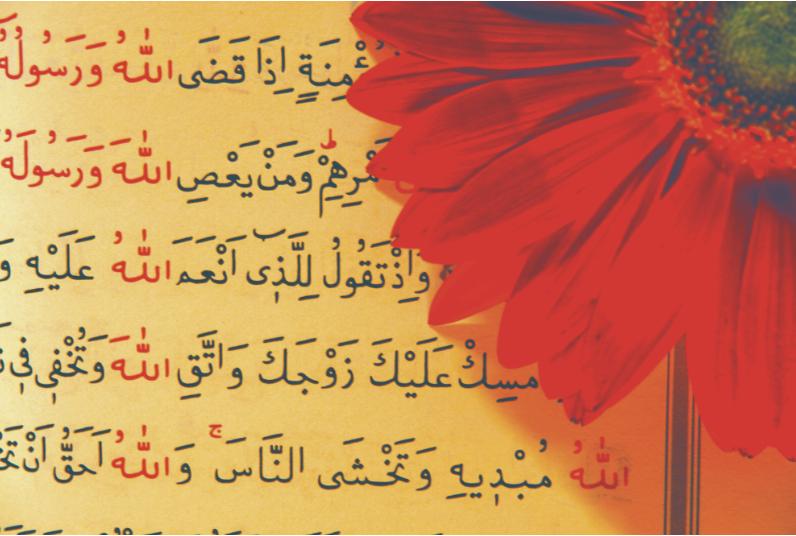 مُؤْمِنَةٍ اِذَا قَضَى اللّٰهُ وَرَسُولُهُ
وَمَنْ يَعْصِ اللّٰهَ وَرَسُولَهُ
وَاِذْ تَقُولُ لِلَّذِى اَنْعَمَ اللّٰهُ عَلَيْهِ
عَلَيْكَ زَوْجَكَ وَاتَّقِ اللّٰهَ وَتُخْفِى فِى
اللّٰهُ مُبْدِيهِ وَتَخْشَى النَّاسَ ۚ وَاللّٰهُ اَحَقُّ اَنْ